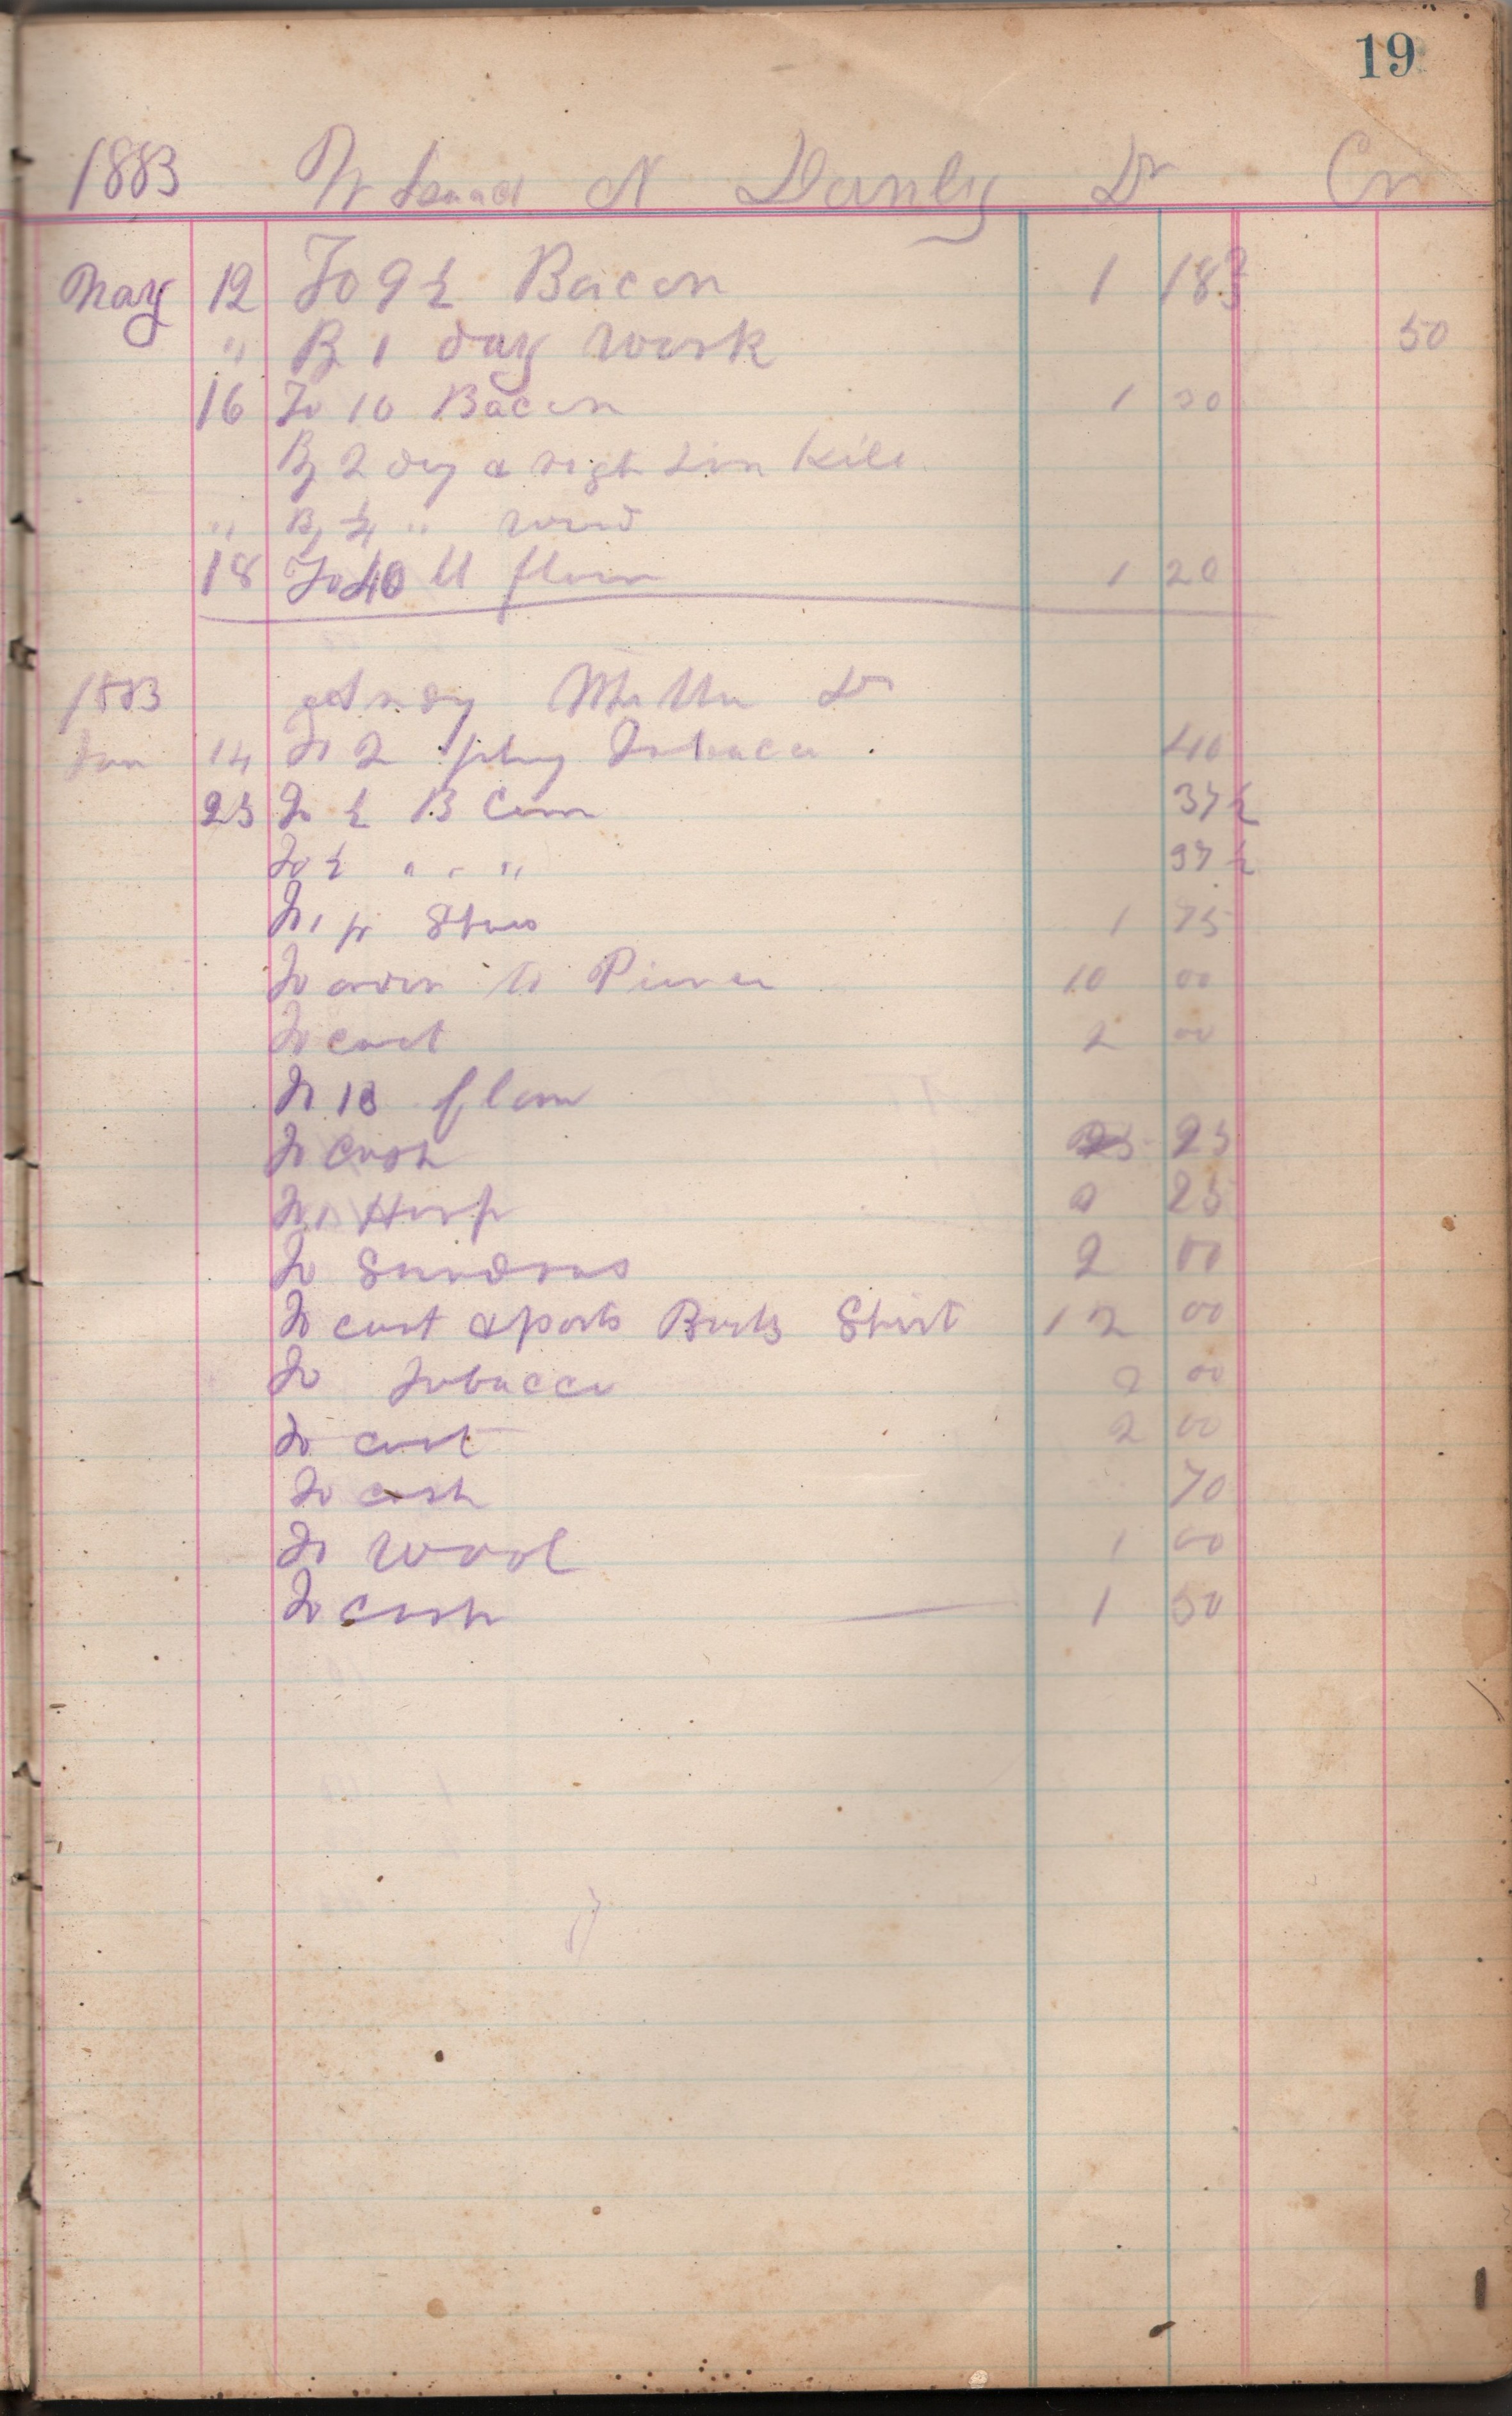 19
1883 N Danly Dr Cr
May 12 To 9 ½ Bacon 1 18
" By 1 day work 50
16 To 10 Bacon 1 30
By 2 day & nigh Lim Kill
" By ¼ "
18 To 40 ll flour 1 20
1883 Andy Dr
Jan 14 To 2 plug Tobacco 40
23 To ½ B Corn 37 ½
To ½ " " " 37 ½
To 1 pr Shoes 1 75
To order to 10 00
To cast 2 00
To 18 flour
To cash 25
To 1 25
To Sundres 2 00
To cast & pants Boots Shirt 12 00
To Tobacco 2 00
To cast 2 00
To cash 70
To Wool 1 00
To cash 1 50